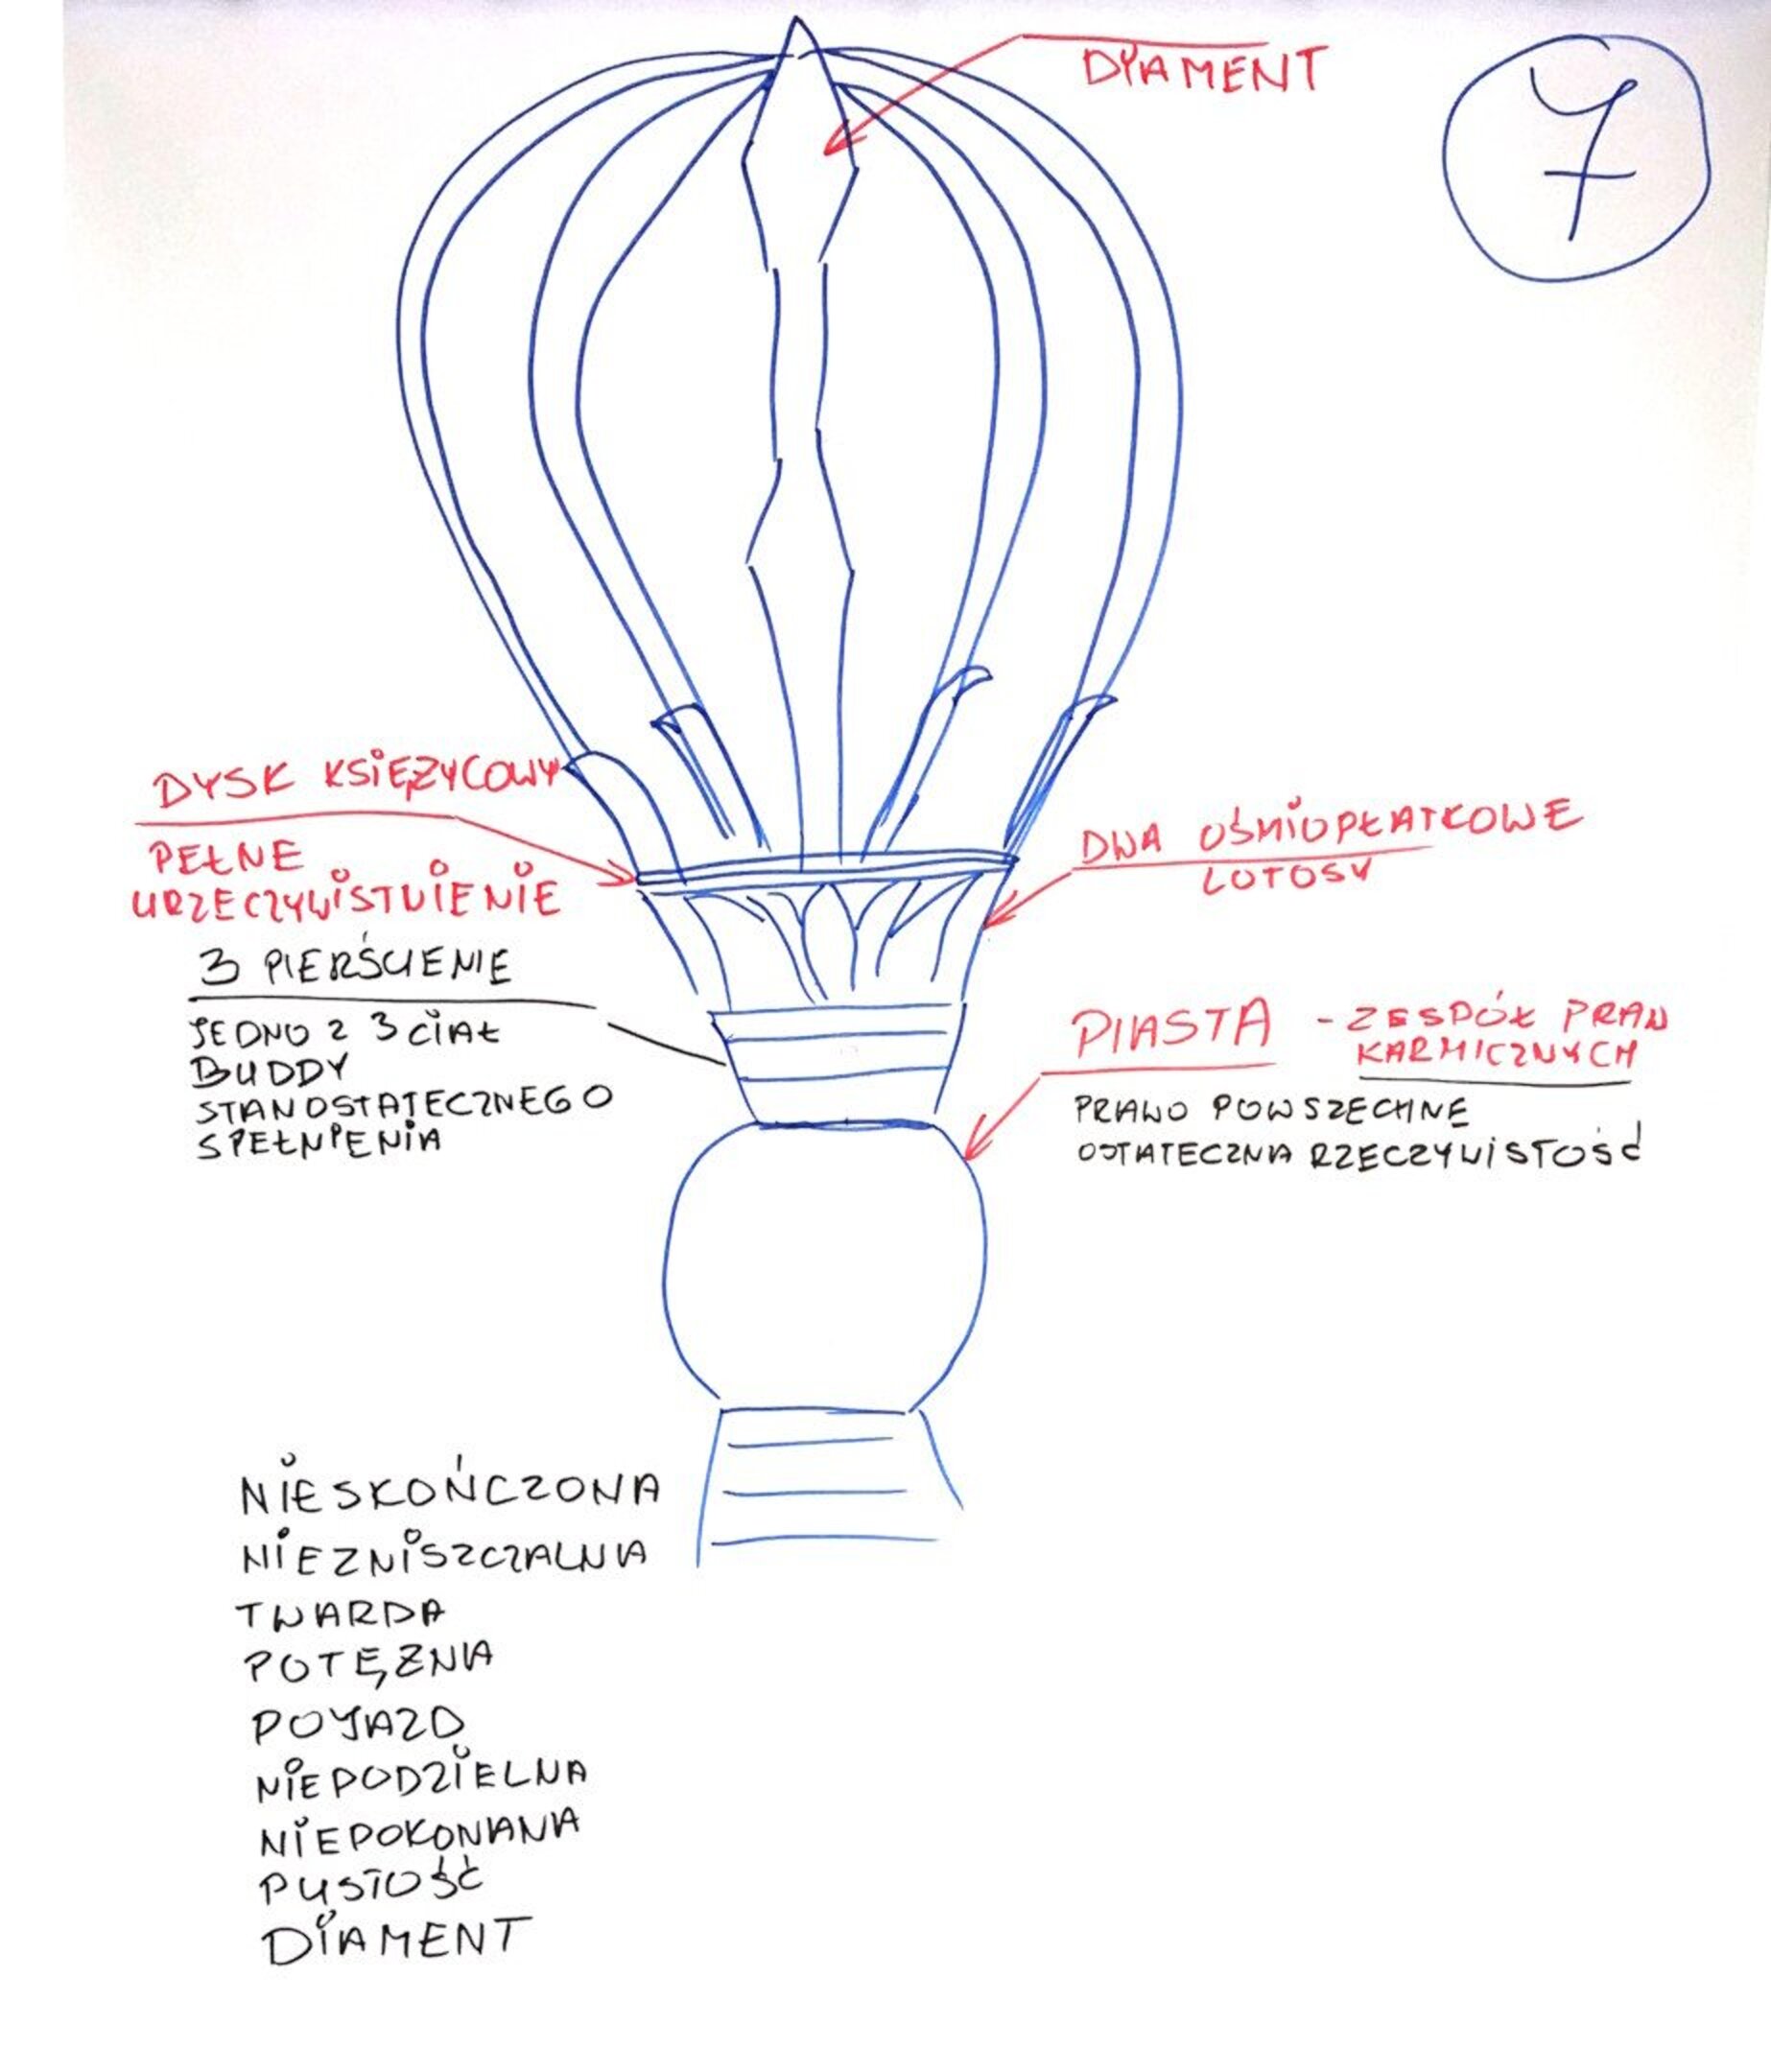 DYAMENT
7
DYSK KSIĘŻYCOWY
PEŁNE
URZECZYWISTNIENIE
DWA OŚMIOPŁATKOWE
LOTOSY
3 PIERŚCIENIE
JEDNO Z 3 CIAŁ
BUDDY
STAN OSTATECZNEGO
SPEŁNIENIA
PIASTA - ZESPÓŁ PRAN
KARMICZNYCH
PRAWO POWSZECHNE
OSTATECZNA RZECZYWISTOŚĆ
NIESKOŃCZONA
NIEZNISZCZALNA
TWARDA
POTĘŻNA
POJAZD
NIEPODZIELNA
NIEPOKONANA
PUSTOŚĆ
DIAMENT